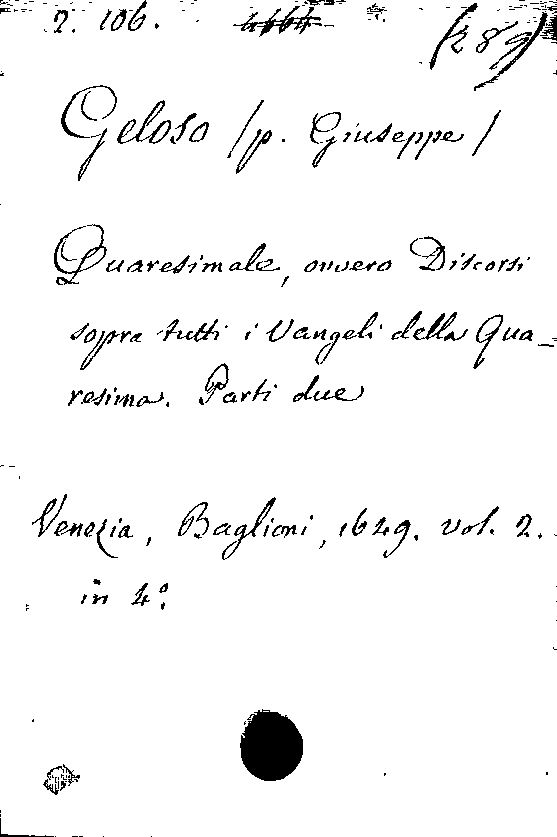 2. 106.
(289)
Geloso /p. Giuseppe/
Quaresimale, ovvero Discorsi
sopra tutti i Vangeli della Qua_
resima. Parti due
Venezia, Baglioni, 1649. vol. 2.
in 4º.